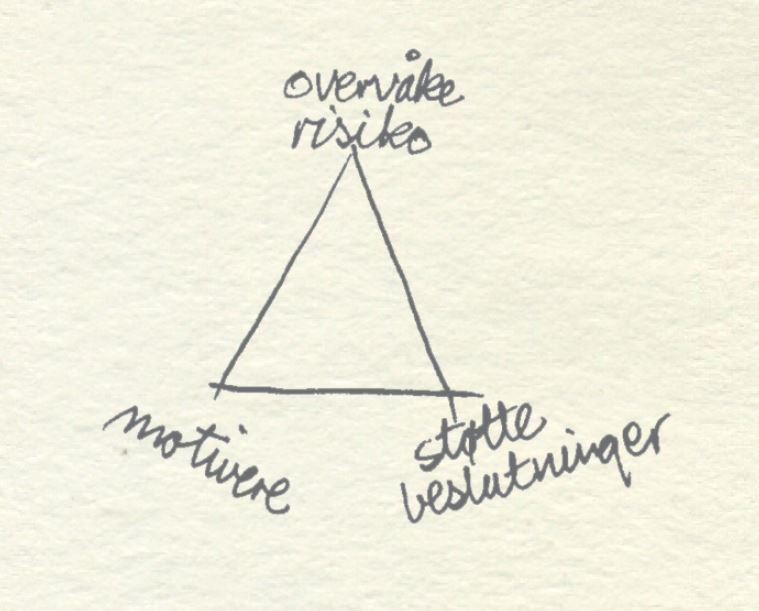 overvåke
risiko
motivere
støtte
beslutninger